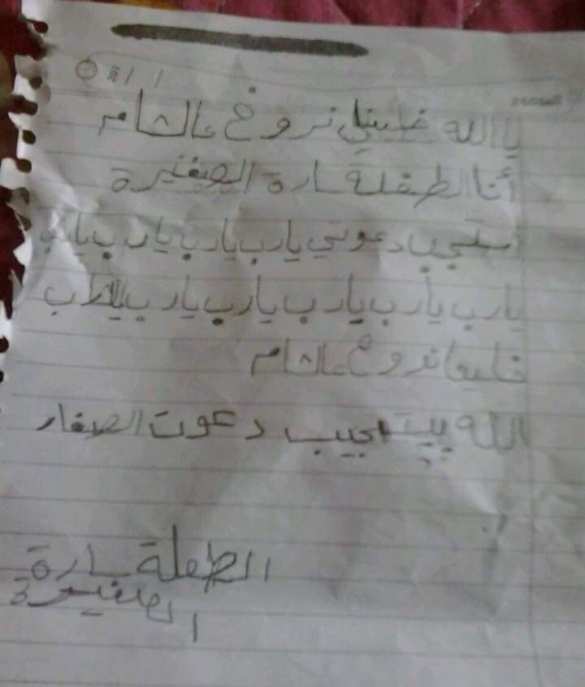 يا الله خليني نروح عالشام
أنا الطفلة سارة الصغيرة
استجيب دعوتي يارب يارب يارب يارب
يارب يارب يارب يارب يارب يارب
خلينا نروح عالشام
الله بيستجيب دعوت الصغار
الطفلة سارة
الصغيرة